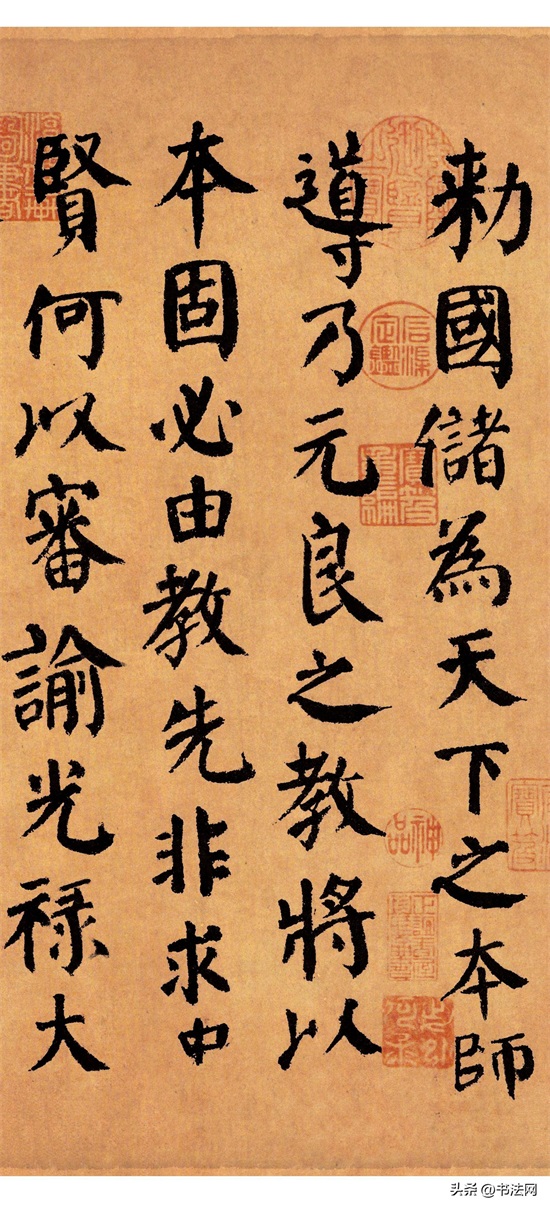 勅國儲為天下之本師
導乃元良之教將以
本固必由教先非求中
賢何以審諭光禄大
神品
头条 @书法网